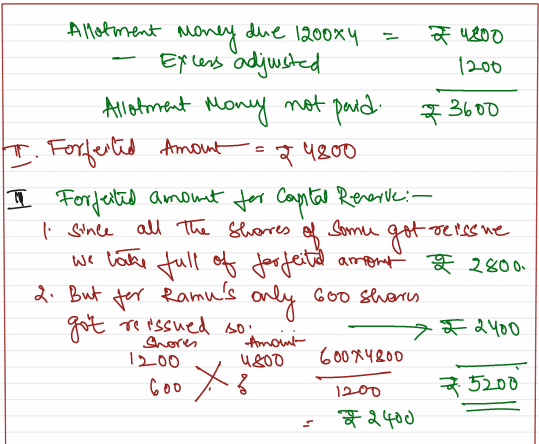 Allotment Money due 1200x4 = ₹ 4800
— Excess adjusted 1200
Allotment Money not paid. ₹ 3600
I. Forfeited Amount = ₹ 4800
II Forfeited amount for Capital Reserve:—
1. since all the shares of Somu got reissue
we take full of forfeitd amount ₹ 2800.
2. But for Ramu's only 600 shares
got reissued so. → ₹ 2400
Shares Amount
1200 4800 600x4800
600 ? 1200 ₹ 5200
= ₹ 2400